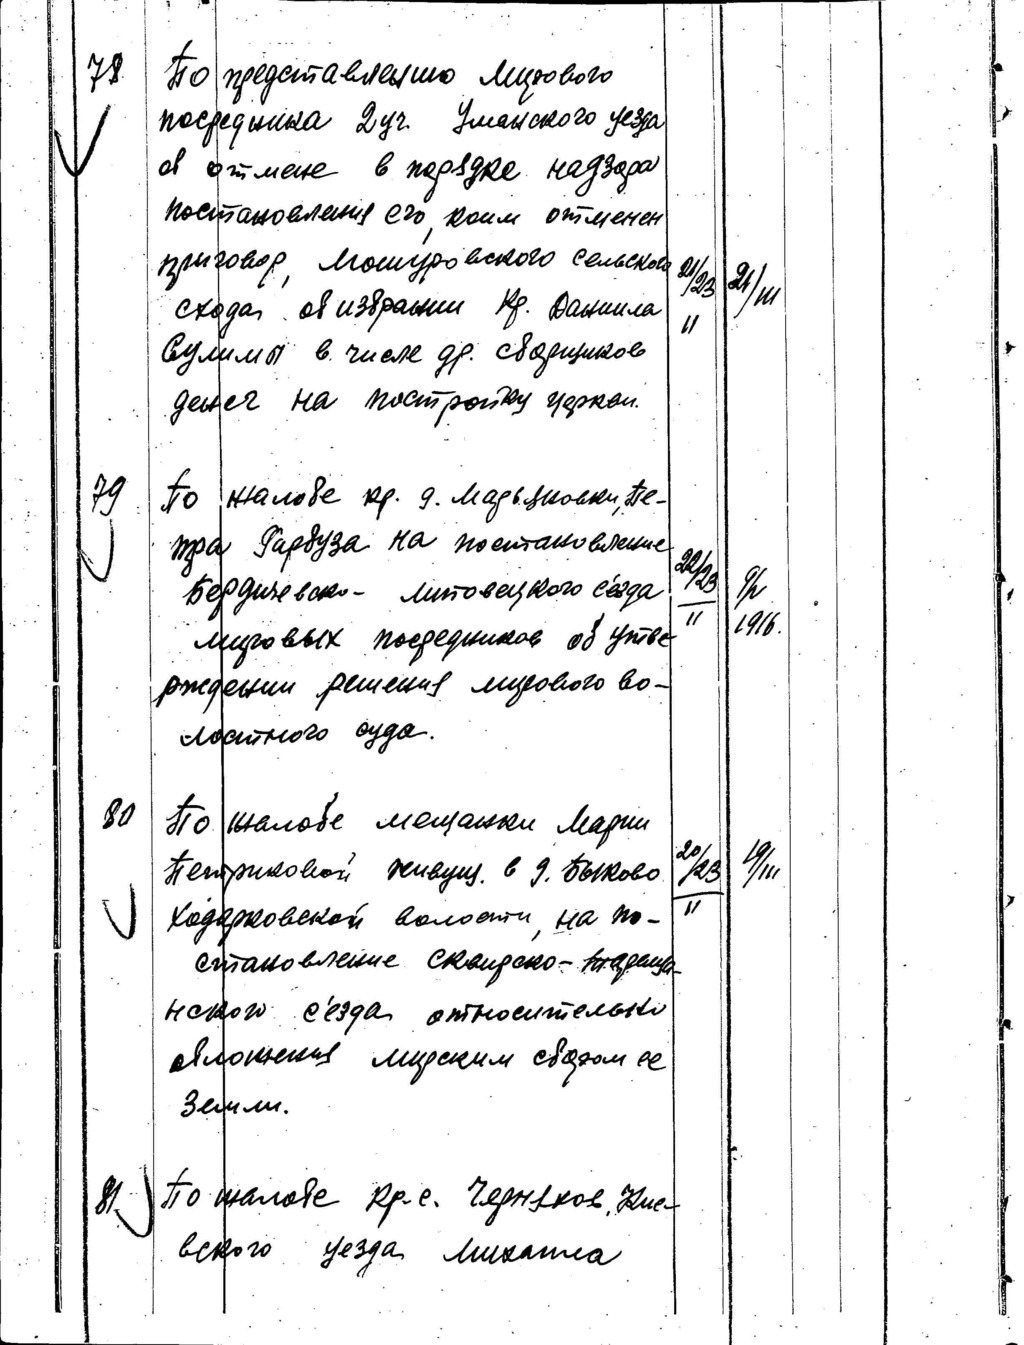 78 По представлению Мирового
посредника 2 уч. Уманского уезда
об отмене в порядке надзора
постановления его, коим отменен
приговор, Мошуровского сельского 21/23 21/III
схода, об избрании кр. Даниила II
Вулимы в числе др. сборщиков
денег на постройку церкви.
79 По жалобе кр. д. Марьяновки, Пе-
тра Гарбуза на постановление
Бердичевско- Липовецкого с'езда 22/23
II 1916.
мировых посредников об утве-
рждении решения мирового во-
лостного суда.
80 По жалобе мещанки Марии
Петриковой живущ. в д. Быково 20/23 19/III
Ходорковской волости, на по- II
становление Сквирско- Таращан-
нского с'езда относительно
обложения мирским сбором ее
земли.
81. По жалобе кр. с. Черняхов, Кие-
вского уезда Михаила